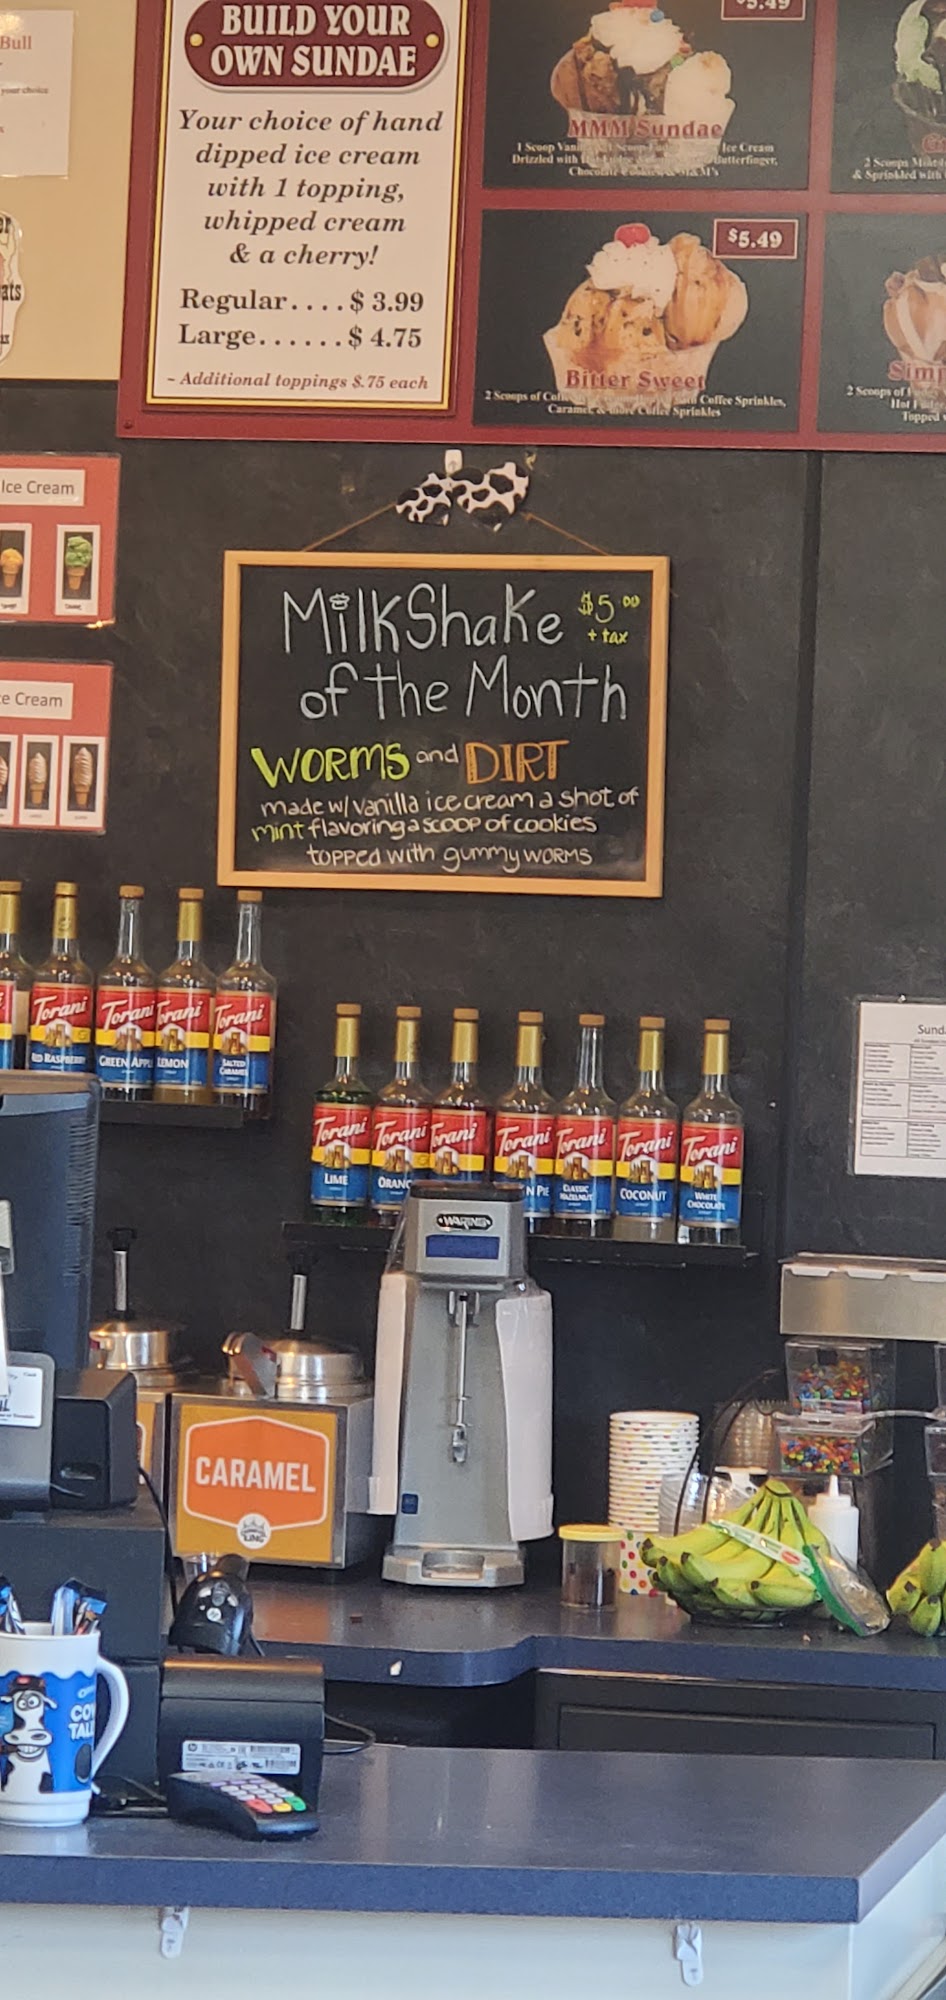 Bull
your choice
BUILD YOUR
OWN SUNDAE
Your choice of hand
dipped ice cream
with 1 topping,
whipped cream
& a cherry!
Regular....$ 3.99
Large......$ 4.75
~ Additional toppings $.75 each
$5.49
MMM Sundae
1 Scoop Ice Cream
Drizzled with Butterfinger,
2 Scoops
& Sprinkled with
$5.49
Bitter Sweet
2 Scoops of Coffee Sprinkles,
Caramel, & more Coffee Sprinkles
Simp
2 Scoops of
Topped
Ice Cream
Ice Cream
MilkShake $5.00
+ tax
of the Month
WORMS and DIRT
made w/ vanilla ice cream a shot of
mint flavoring a scoop of cookies
topped with gummy worms
Torani
RED RASPBERRY
Torani
GREEN APPL
Torani
LEMON
Torani
SALTED
CARAMEL
Torani
LIME
Torani
ORANG
Torani
Torani
N PIE
Torani
CLASSIC
HAZELNUT
Torani
COCONUT
Torani
WHITE
CHOCOLATE
Sund
WARING
CARAMEL
COW
TAL
hp